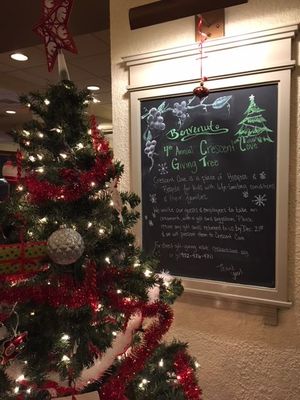 Benvenuto
4th Annual Crescent Cove
Giving Tree
Crescent Cove is a place of Hospice &
Respite for kids with life-limiting conditions
& their families.
We invite our guests & employees to take an
ornament with a gift and
return any gift and ornament to us by Dec. 21st
& we will present them to Crescent Cove.
For
or 952-426-4711
Thank
you!